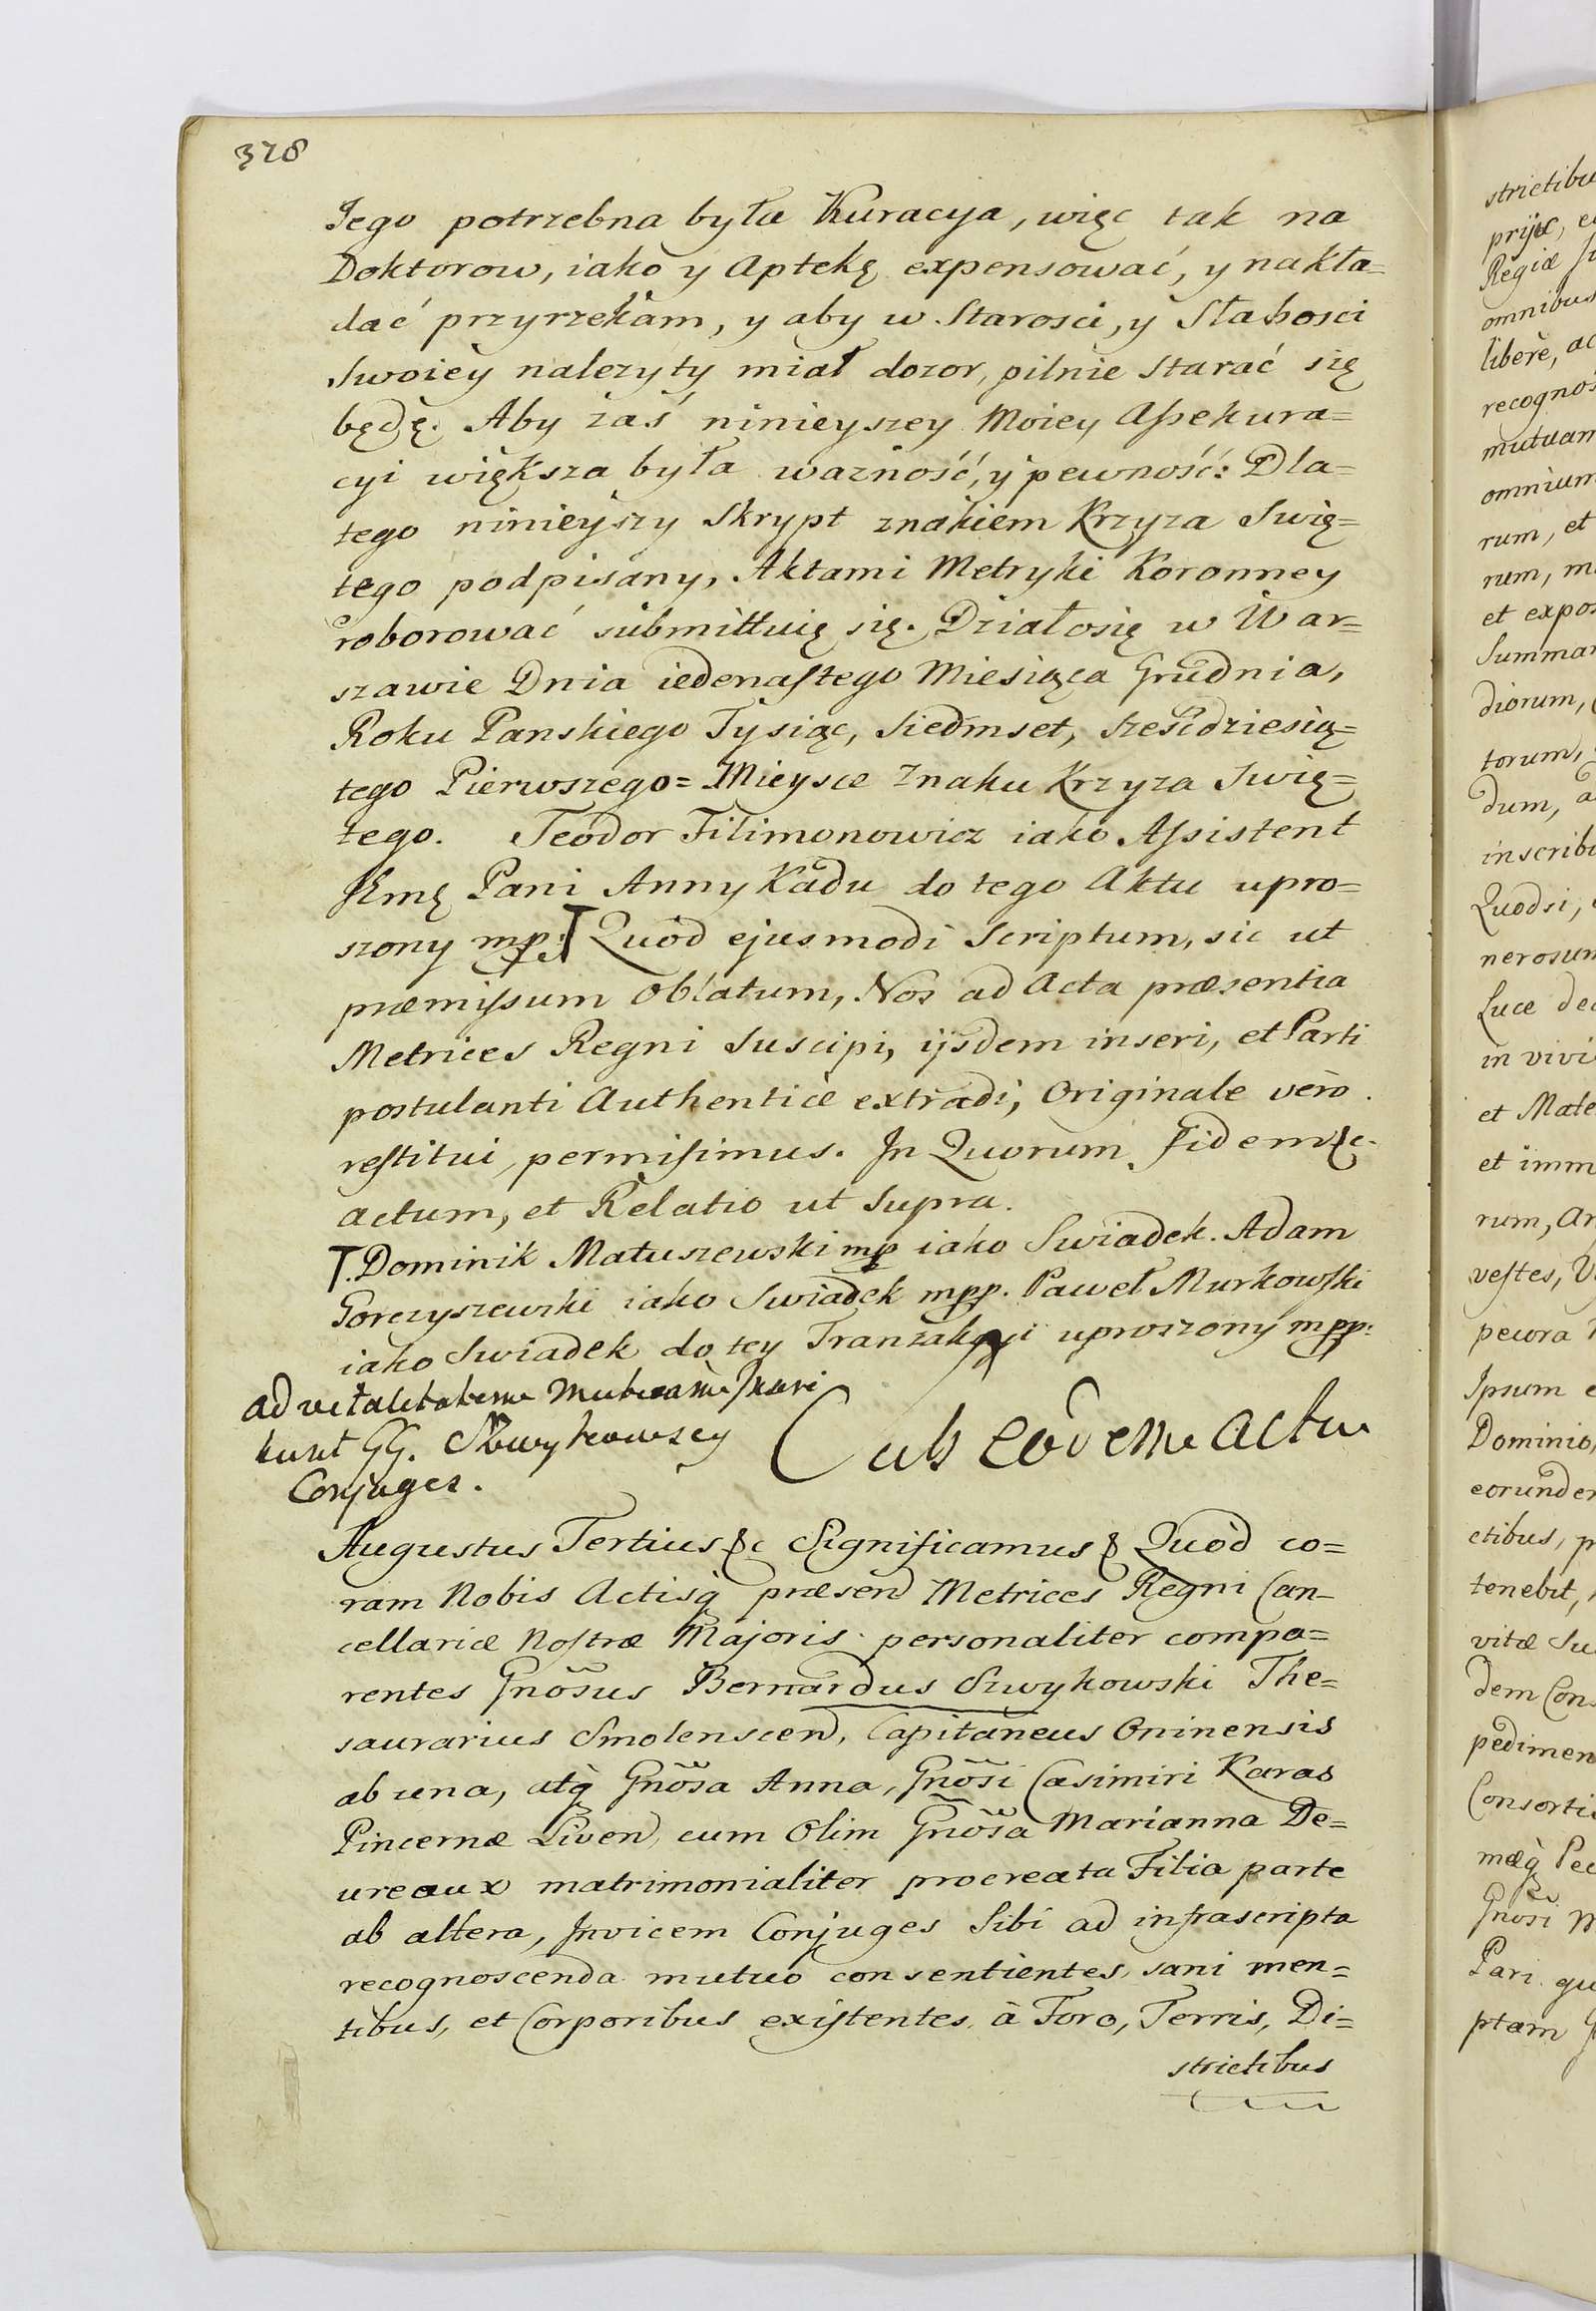 328
Jego potrzebna była Kuracya, więc tak na
Doktorow, iako y Aptekę expensować, y nakła=
dać przyrzekam, y aby w Starosci, y Słabosci
Swoiey nalezyty miał dozor, pilnie Starać się
będę. Aby zaś ninieyszey Moiey Aſsekura=
cyi większa była wazność, y pewność: Dla=
tego ninieyszy Skrypt znakiem Krzyza Swię=
tego podpisany, Aktami Metryki Koronney
roborować submittuię się. Działosię w War=
szawie Dnia iedenaſtego Miesiąca Grudnia,
Roku Panskiego Tysiąc, Siedmset, sześćdziesią=
tego Pierwszego= Mieysce Znaku Krzyza Swię=
tego. Teodor Filimonowicz iako Aſsistent
Jkmę Pani Anny Kadu do tego Aktu upro=
szony mp: Quod ejusmodi Scriptum, sic ut
præmiſsum Oblatum, Nos ad Acta præsentia
Metrices Regni Suscipi, ijsdem inseri, et Parti
postulanti Authenticè extradi, Originale vero
reſtitui, permiſimus. In Quorum fidem &c.
actum, et Relatio ut Supra.
Dominik Matuszewski mp iako Swiadek. Adam
Gorczyszewski iako Swiadek mpp. Paweł Murkowſki
iako Swiadek do tey Tranzakcyi uproszony mpp:
ad vitalitatem mutuam Inscri
bunt GG. Szwykowscy
Conjuges.
Sub eodem actu
Augustus Tertius &c Significamus & Quòd co=
ram Nobis Actisq̃ præsen Metrices Regni Can-
cellariæ Noſtræ Majoris personaliter compa=
rentes Gnõsus Bernardus Szwykowski The=
saurarius Smolenscen, Capitaneus Oninensis
ab una, atq̀ Gnõsa Anna, Gnõsi Casimiri Karas
Pincernæ Liven, cum Olim Gnõsa Marianna De=
ureaux matrimonialiter procreata Filia parte
ab altera, Invicem Conjuges Sibi ad infrascripta
recognoscenda mutuò consentientes, sani men=
tibus, et Corporibus exiſtentes, à Foro, Terris, Di=
strictibus
strictibu
Regiæ
omnibus
liberè, ac
recognos
mutuam
omnium
rum, et
rum, m
et expos
Summar
diorum,
torum,
dum, a
inscrib
Quodsi,
nerosum
Luce de
in vivi
et Mate
et imm
rum, ar
veſtes, V
Ipsum e
Dominio,
eorunden
ctibus, p
tenebit,
vitæ Su
dem Con
pedimen
Consorti
Gnõsi M
Pari qu
ptam